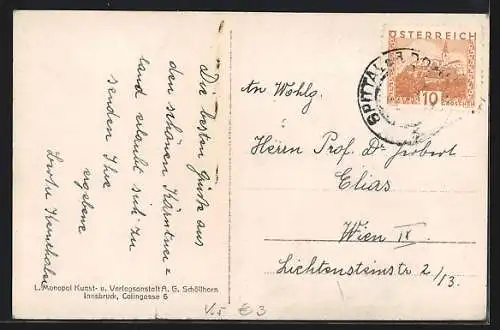 Die besten Grüße aus
dem schönen Kärntner-
land erlaubt sich zu
senden Ihre
ergebene
L. Monopol Kunst- u. Verlagsanstalt A. G. Schöllhorn
Innsbruck, Colingasse 6
ÖSTERREICH
10
GROSCHEN
SPITTAL
An Wohlg.
Herrn Prof. Dr
Elias
Wien IX.
Lichtensteinstr. 2/13.
V.5 € 3